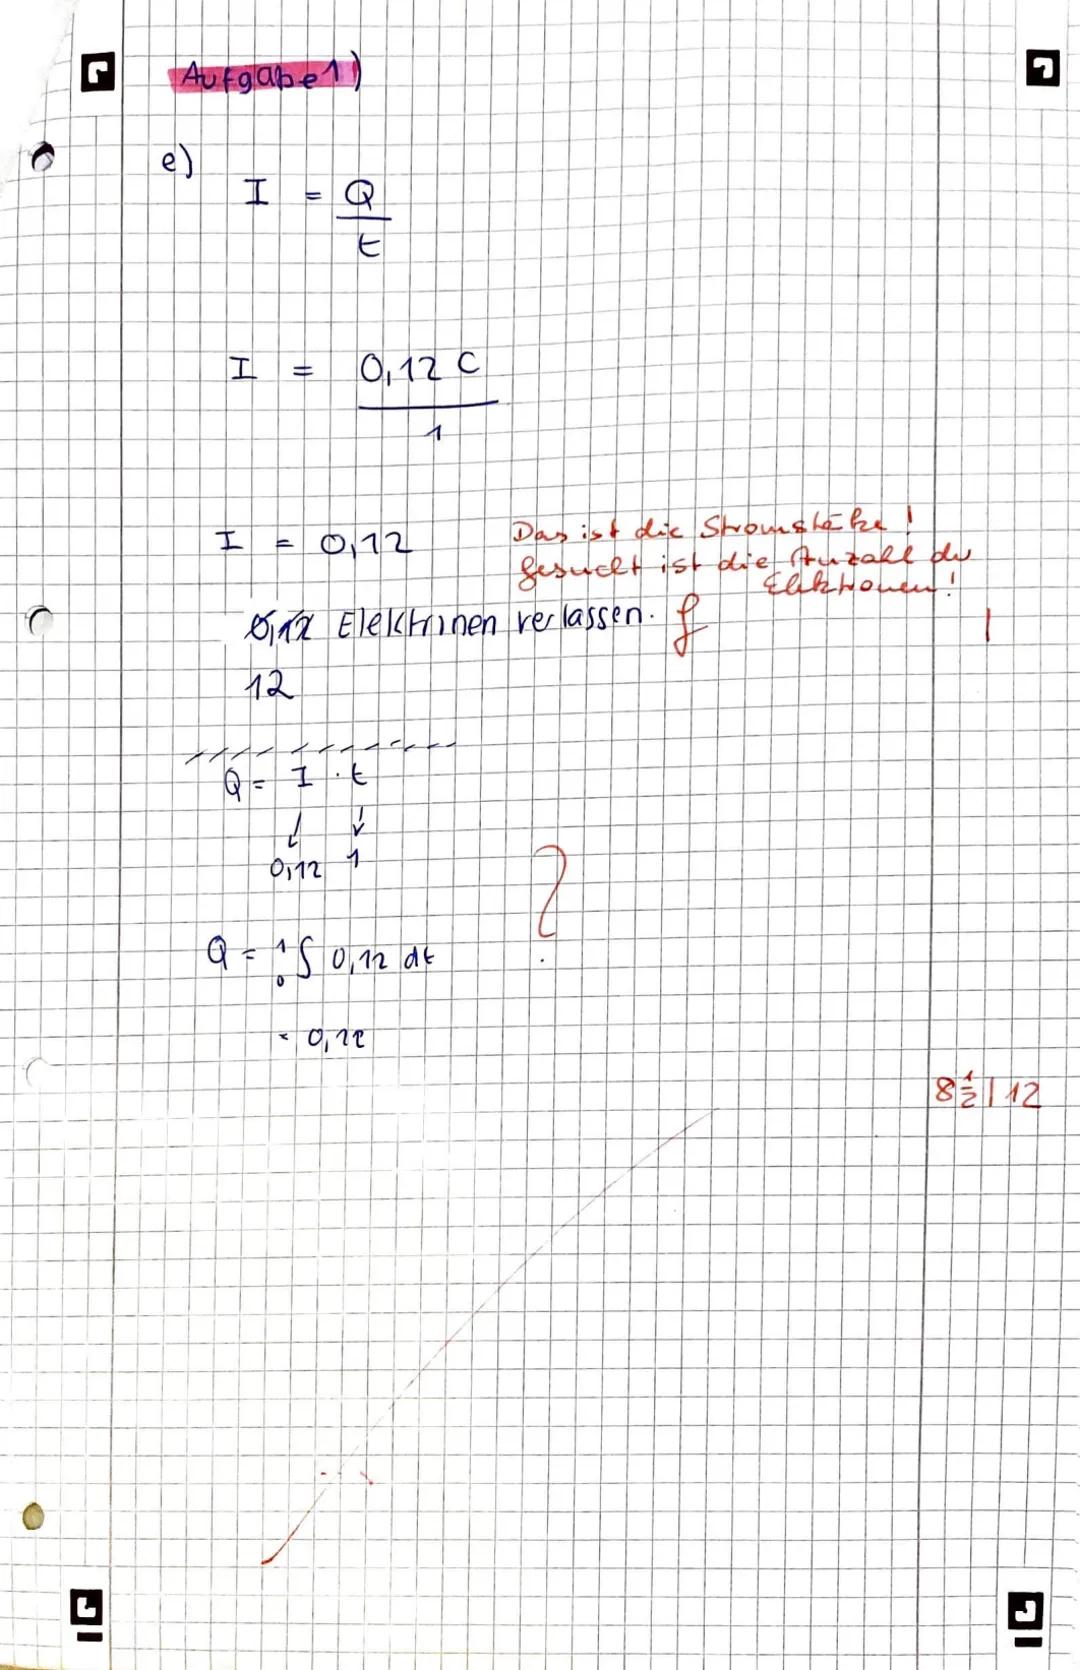 Aufgabe 1)
e)
I = Q
t
I = 0,12 C
1
I = 0,12
Das ist die Stromstärke!
gesucht ist die Anzahl der
Elektronen!
0,12 Elektrinen verlassen. f
1
12
Q = I · t
0,12 1
?
Q = 1 ∫ 0,12 dt
0
= 0,12
8 1/2 | 12